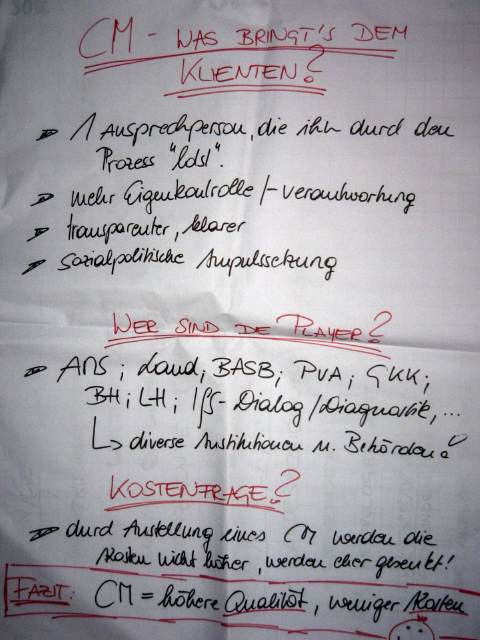 CM - WAS BRINGT'S DEM
KLIENTEN?
1 Ansprechperson, die ihn durch den
Prozess "
mehr Eigenkontrolle /-verantwortung
transparenter, klarer
sozialpolitische Impulssetzung
WER SIND DE PLAYER?
AMS; Land; BASB; PVA; GKK;
BH; LH; Iff-Dialog/Diagnostik, ...
diverse Institutionen u. Behörden!
KOSTENFRAGE?
durch Anstellung eines CM werden die
Kosten nicht höher, werden eher gesenkt!
FAZIT: CM = höhere Qualität, weniger Kosten